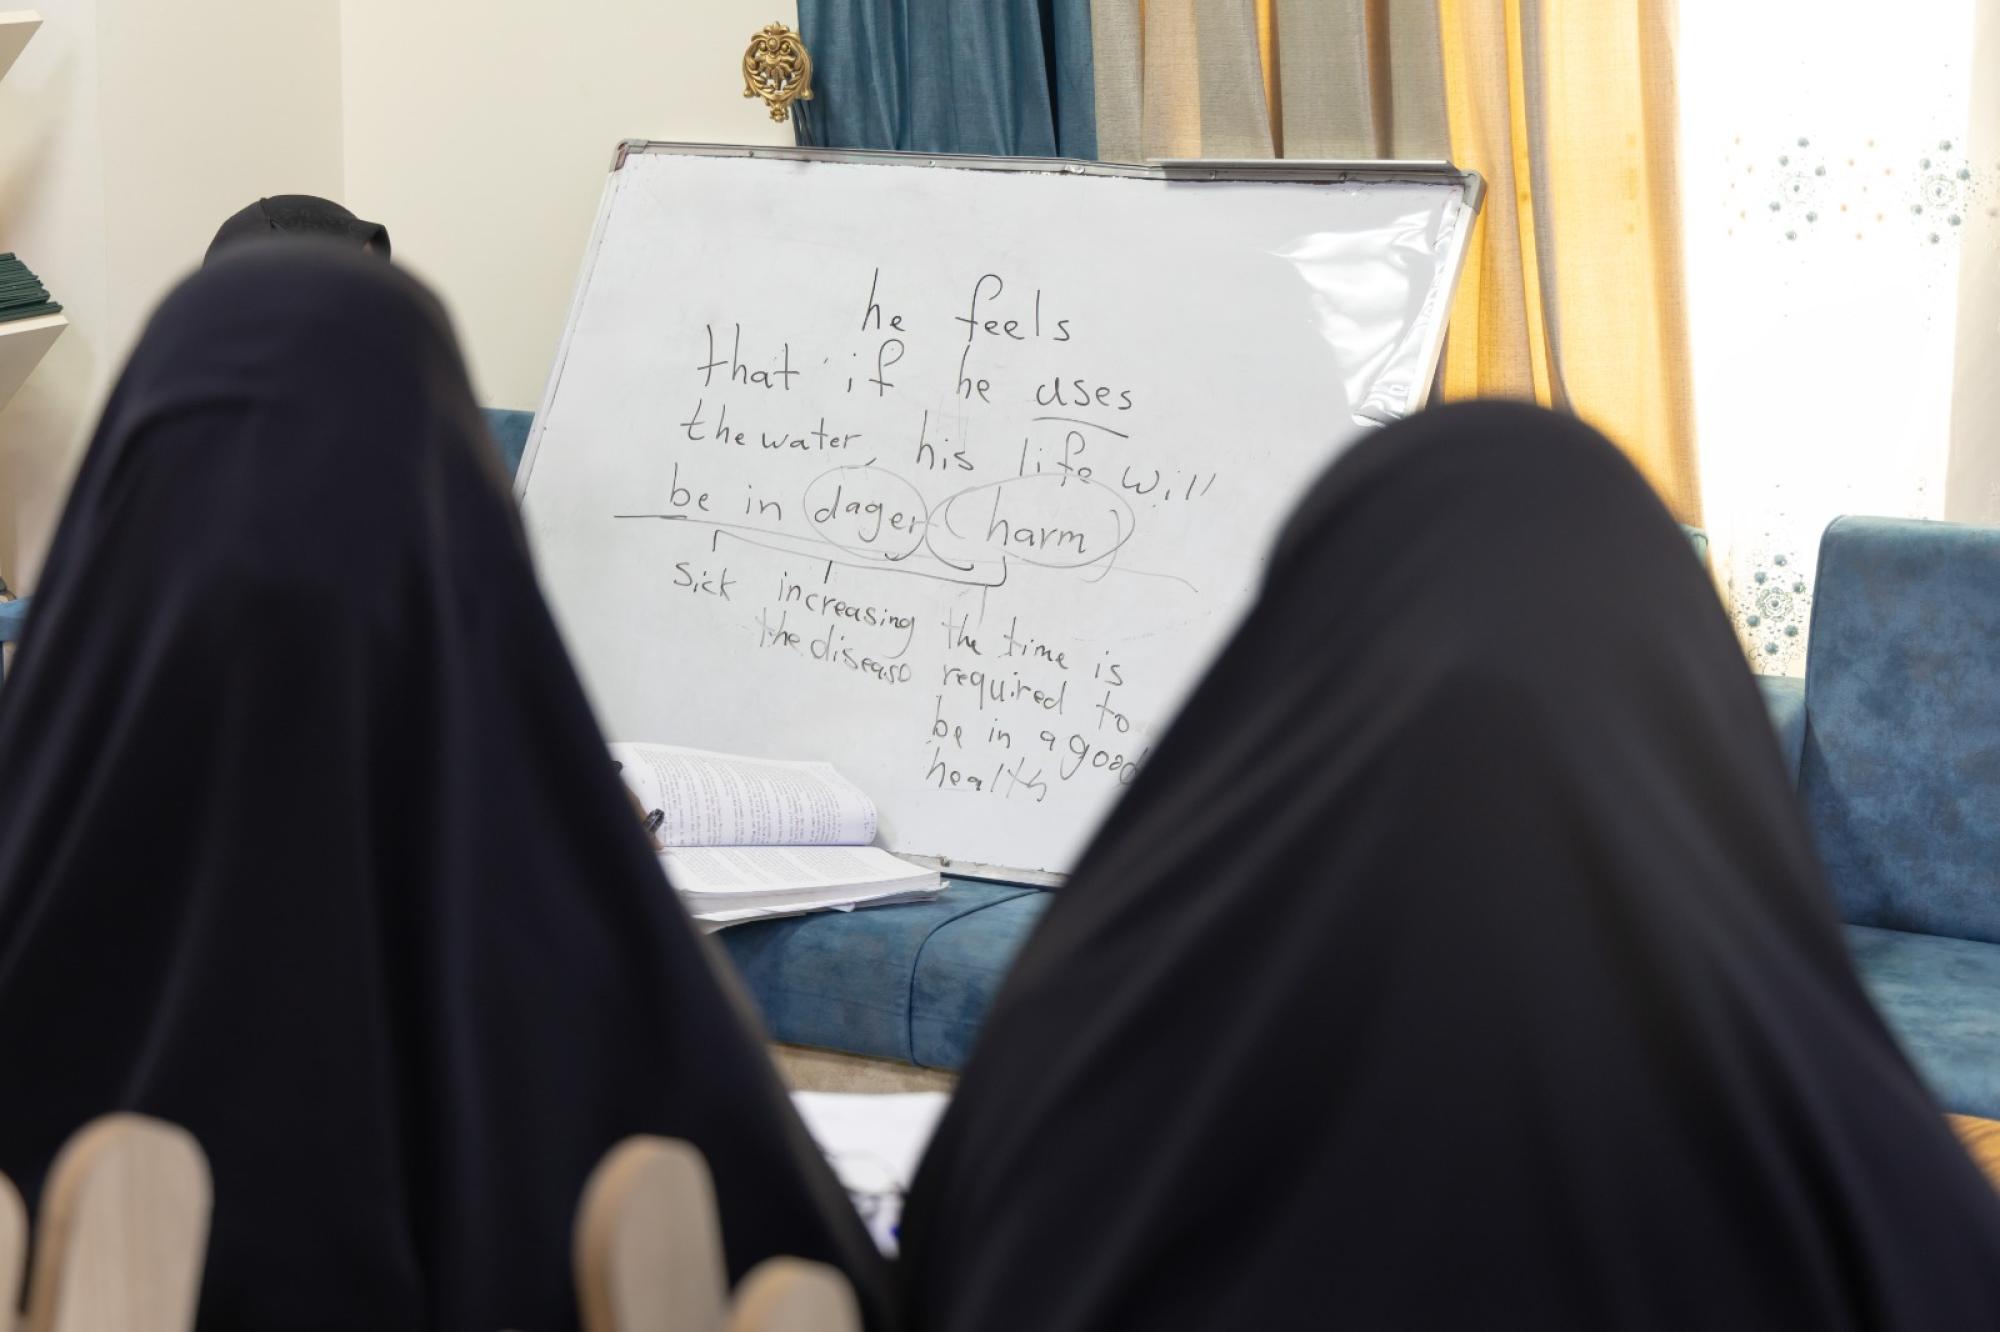 he feels
that if he uses
the water, his life will
be in dager (harm)
sick increasing the disease
the time is
required to
be in a good
health